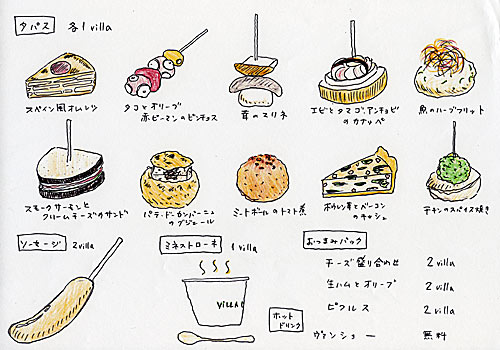 タパス 各1villa
スペイン風オムレツ
タコとオリーブ
赤ピーマンのピンチョス
茸のマリネ
エビとタマゴ、アンチョビ
のカナッペ
魚のハーブフリット
スモークサーモンと
クリームチーズのサンド
パテ・ド・カンパーニュ
のグジェール
ミートボールのトマト煮
ホウレン草とベーコン
のキッシュ
チキンのスパイス焼き
ソーセージ 2villa
ミネストローネ 1villa
VILLA
おつまみパック
チーズ盛り合わせ 2villa
生ハムとオリーブ 2villa
ピクルス 2villa
ホット
ドリンク
ヴァンショー 無料